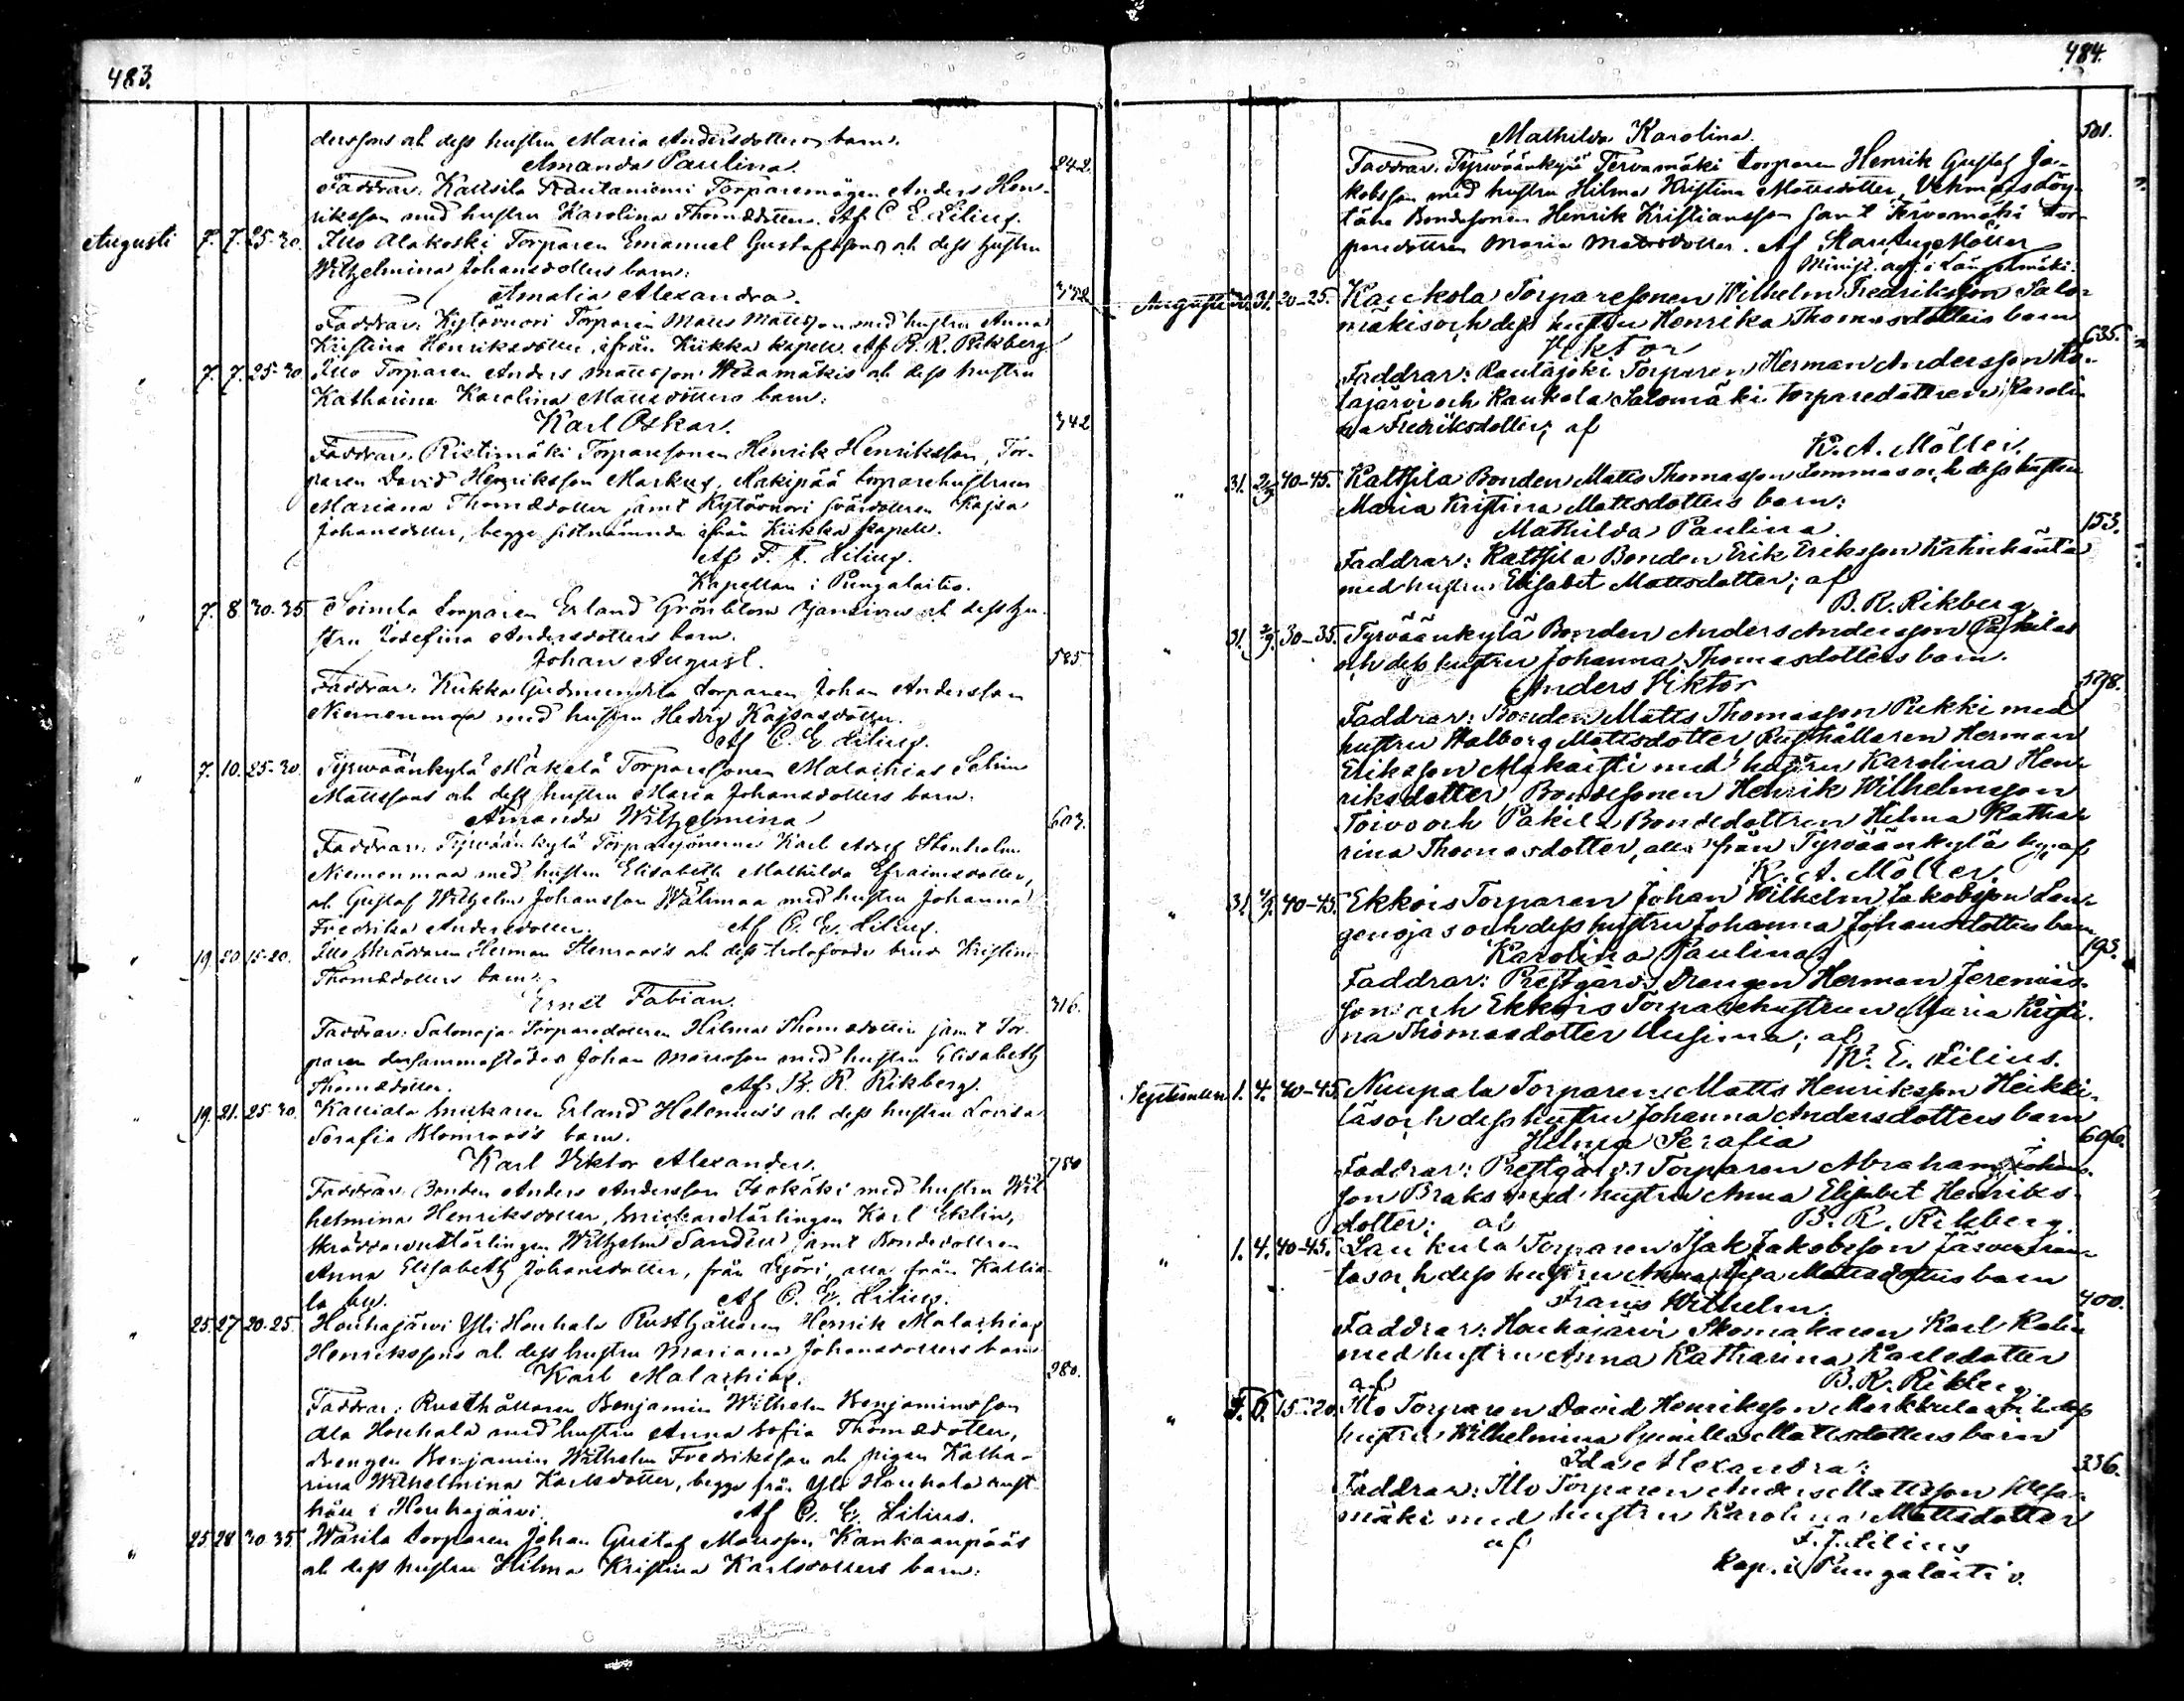 483.
derssons och dess hustru Maria Andersdotters barn.
Amanda Paulina. 242.
Faddrar: Kaltsila Rautaniemi Torparemågen Anders Hen-
riksson med hustru Karolina Thomædotter. Af C. E. Lilius.
Augusti 7. 7. 25-30. Illo Alakoski Torparen Emanuel Gustafssons och dess hustru
Wilhelmina Johansdotters barn:
Amalia Alexandra. 352
Faddrar: Kytövuori Torparen Matts Mattsson med hustru Anna
Kristina Henriksdotter, ifrån Kiikka kapell. Af B. R. Rikberg
" 7. 7. 25-30 Illo Torparen Anders Mattsson Wesamäkis och dess hustru
Katharina Karolina Mattsdotters barn:
Karl Oskar. 342
Faddrar: Ristimäki Torparesonen Henrik Henriksson, Tor-
paren David Henriksson Markus, Rakipää torparehustrun
Mariana Thomædotter samt Kytövuori Kajsa
Johansdotter, begge sistnämnda ifrån Kiikka kapell.
Af F. F. Lilius.
Kapellan i Pungalaitio.
" 7. 8. 30-35 Soinila torparen Erland Grönblom och dess hu-
stru Josefina Andersdotters barn.
Johan August. 585
Faddrar: Kiikka Gudmundila torparen Johan Andersson
Niemenmaa med hustru Hedvig Kajsasdotter.
Af C. E. Lilius.
" 7. 10. 25-30. Tyrwäänkylä Mäkelä Torparesonen Malachias Selim
Mattssons och dess hustru Maria Johansdotters barn.
Amanda Wilhelmina 603.
Faddrar: Tyrväänkylä Torparesönerna Karl Adolf Stenholm
Niemenmaa med hustru Elisabeth Mathilda Efraimsdotter,
och Gustaf Wilhelm Johansson Wälimaa med hustru Johanna
Fredrika Andersdotter. Af C. E. Lilius.
" 19 20 15-20. Illo skräddaren Herman Stenroos's och dess trolofvade brud Kristina
Thomædotters barn:
Ernst Fabian. 316.
Faddrar: Salonoja Torparedottren Hilma Thomædotter samt Tor-
paren dersammastädes Johan Mattsson med hustru Elisabeth
Thomædotter. Af B. R. Rikberg.
" 19. 21. 25-30. Kalliala snickaren Erland Helenius's och dess hustru Lovisa
Serafia Blomroos's barn.
Karl Viktor Alexander. 750
Faddrar: Bonden Anders Andersson Isokäki med hustru Wil-
helmina Henriksdotter, snickarelärlingen Karl Eklin,
skräddarelärlingen Wilhelm Sandell samt Bondedottren
Anna Elisabeth Johansdotter, från Kjöri, alla från Kallia-
la by. Af C. E. Lilius.
" 25. 27 20-25. Houhajärvi Yli Houhala Rusthållaren Henrik Malachias
Henrikssons och dess hustru Mariana Johansdotters barn
Karl Malachias. 280.
Faddrar: Rusthållaren Benjamin Wilhelm Benjaminsson
Ala Houhala med hustru Anna Sofia Thomædotter,
drengen Benjamin Wilhelm Fredriksson och pigan Katha-
rina Wilhelmina Karlsdotter, begge från Yli Houhala rust-
håll i Houhajärvi. Af C. E. Lilius.
" 25 28 30-35. Warila torparen Johan Gustaf Mattsson Kankaanpääs
och dess hustru Hilma Kristina Karlsdotters barn:
484.
Mathilda Karolina. 501.
Faddrar: Tyrväänkylä Tervamäki torparen Henrik Gustaf Ja-
kobsson med hustru Hilma Kristina Mattsdotter,
Bondesonen Henrik Kristiansson samt Tervamäki tor-
paredottren Maria Mattsdotter. Af Karl Aug Möller
Minist. adj. i Längelmäki.
Augusti 31. 20-25. Kaukola Torparesonen Wilhelm Fredriksson Salo-
mäkis och dess hustru Henrika Thomasdotters barn
Viktor 635.
Faddrar: Rautajoki Torparen Herman Andersson
och Kaukola Salomäki torparedottren Karoli-
na Fredriksdotter; af
K. A. Möller.
" 31. 2/9 40-45. Kaltsila Bonden Matts Thomasson Sommas och dess hustru
Maria Kristina Mattsdotters barn:
Mathilda Paulina. 153.
Faddrar: Kaltsila Bonden Erik Eriksson Kahinhäntä
med hustru Elisabet Mattsdotter; af
B. R. Rikberg
" 31. 2/9. 30-35. Tyrväänkylä Bonden Anders Andersson Pakilas
och dess hustru Johanna Thomasdotters barn.
Anders Viktor 598.
Faddrar: Bonden Matts Thomasson Pukki med
hustru Walborg Mattsdotter Rusthållaren Herman
Eriksson Makaisti med hustru Karolina Hen-
riksdotter, Bondesonen Henrik Wilhelmsson
Toivo och Pakila Bondedottren Hilma Katha-
rina Thomasdotter, alla från Tyrväänkylä by; af
K. A. Möller.
" 31. 4/9. 40-45. Ekkois Torparen Johan Wilhelm Jakobsson Lan-
genojas och dess hustru Johanna Johansdotters barn
Karolina Paulina 193.
Faddrar: Prestgårds Drengen Herman Jeremias-
son och Ekkois Torparehustrun Maria Kristi-
na Thomasdotter Uusimaa; af
K. E. Lilius.
September 1. 4. 40-45. Nuupala Torparen Matts Henriksson Heikki-
läs och dess hustru Johanna Andersdotters barn
Hilma Serafia 606.
Faddrar: Prestgårds Torparen Abraham Johans-
son Braks med hustru Anna Elisabet Henriks-
dotter; af B. R. Rikberg.
" 1. 4. 40-45. Laukula Torparen Isak Jakobsson Järvenran-
tas och dess hustru Anna Lisa Mattsdotters barn
Frans Wilhelm. 400.
Faddrar: Houhajärvi Skomakaren Karl Kalin
med hustru Anna Katharina Karlsdotter
af B. R. Rikberg
" 5. 6. 15-20. Illo Torparen David Henriksson Markkulas och dess
hustru Wilhelmina Gunilla Mattsdotters barn
Ida Alexandra: 336.
Faddrar: Illo Torparen Anders Mattsson Wesa-
mäki med hustru Karolina Mattsdotter
af F. F. Lilius
Kap. i Pungalaitio.